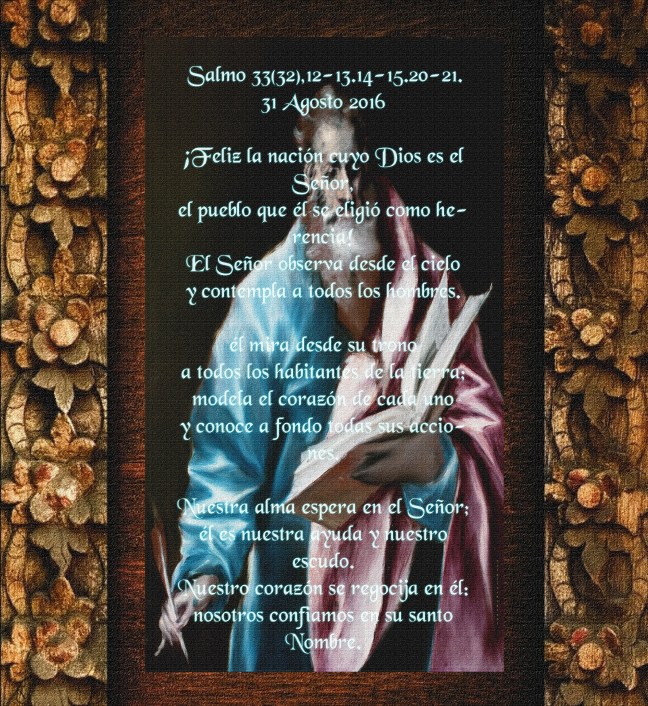 Salmo 33(32),12-13.14-15.20-21.
31 Agosto 2016
¡Feliz la nación cuyo Dios es el
Señor,
el pueblo que él se eligió como he-
rencia!
El Señor observa desde el cielo
y contempla a todos los hombres.
él mira desde su trono
a todos los habitantes de la tierra;
modela el corazón de cada uno
y conoce a fondo todas sus accio-
nes.
Nuestra alma espera en el Señor;
él es nuestra ayuda y nuestro
escudo.
Nuestro corazón se regocija en él:
nosotros confiamos en su santo
Nombre.